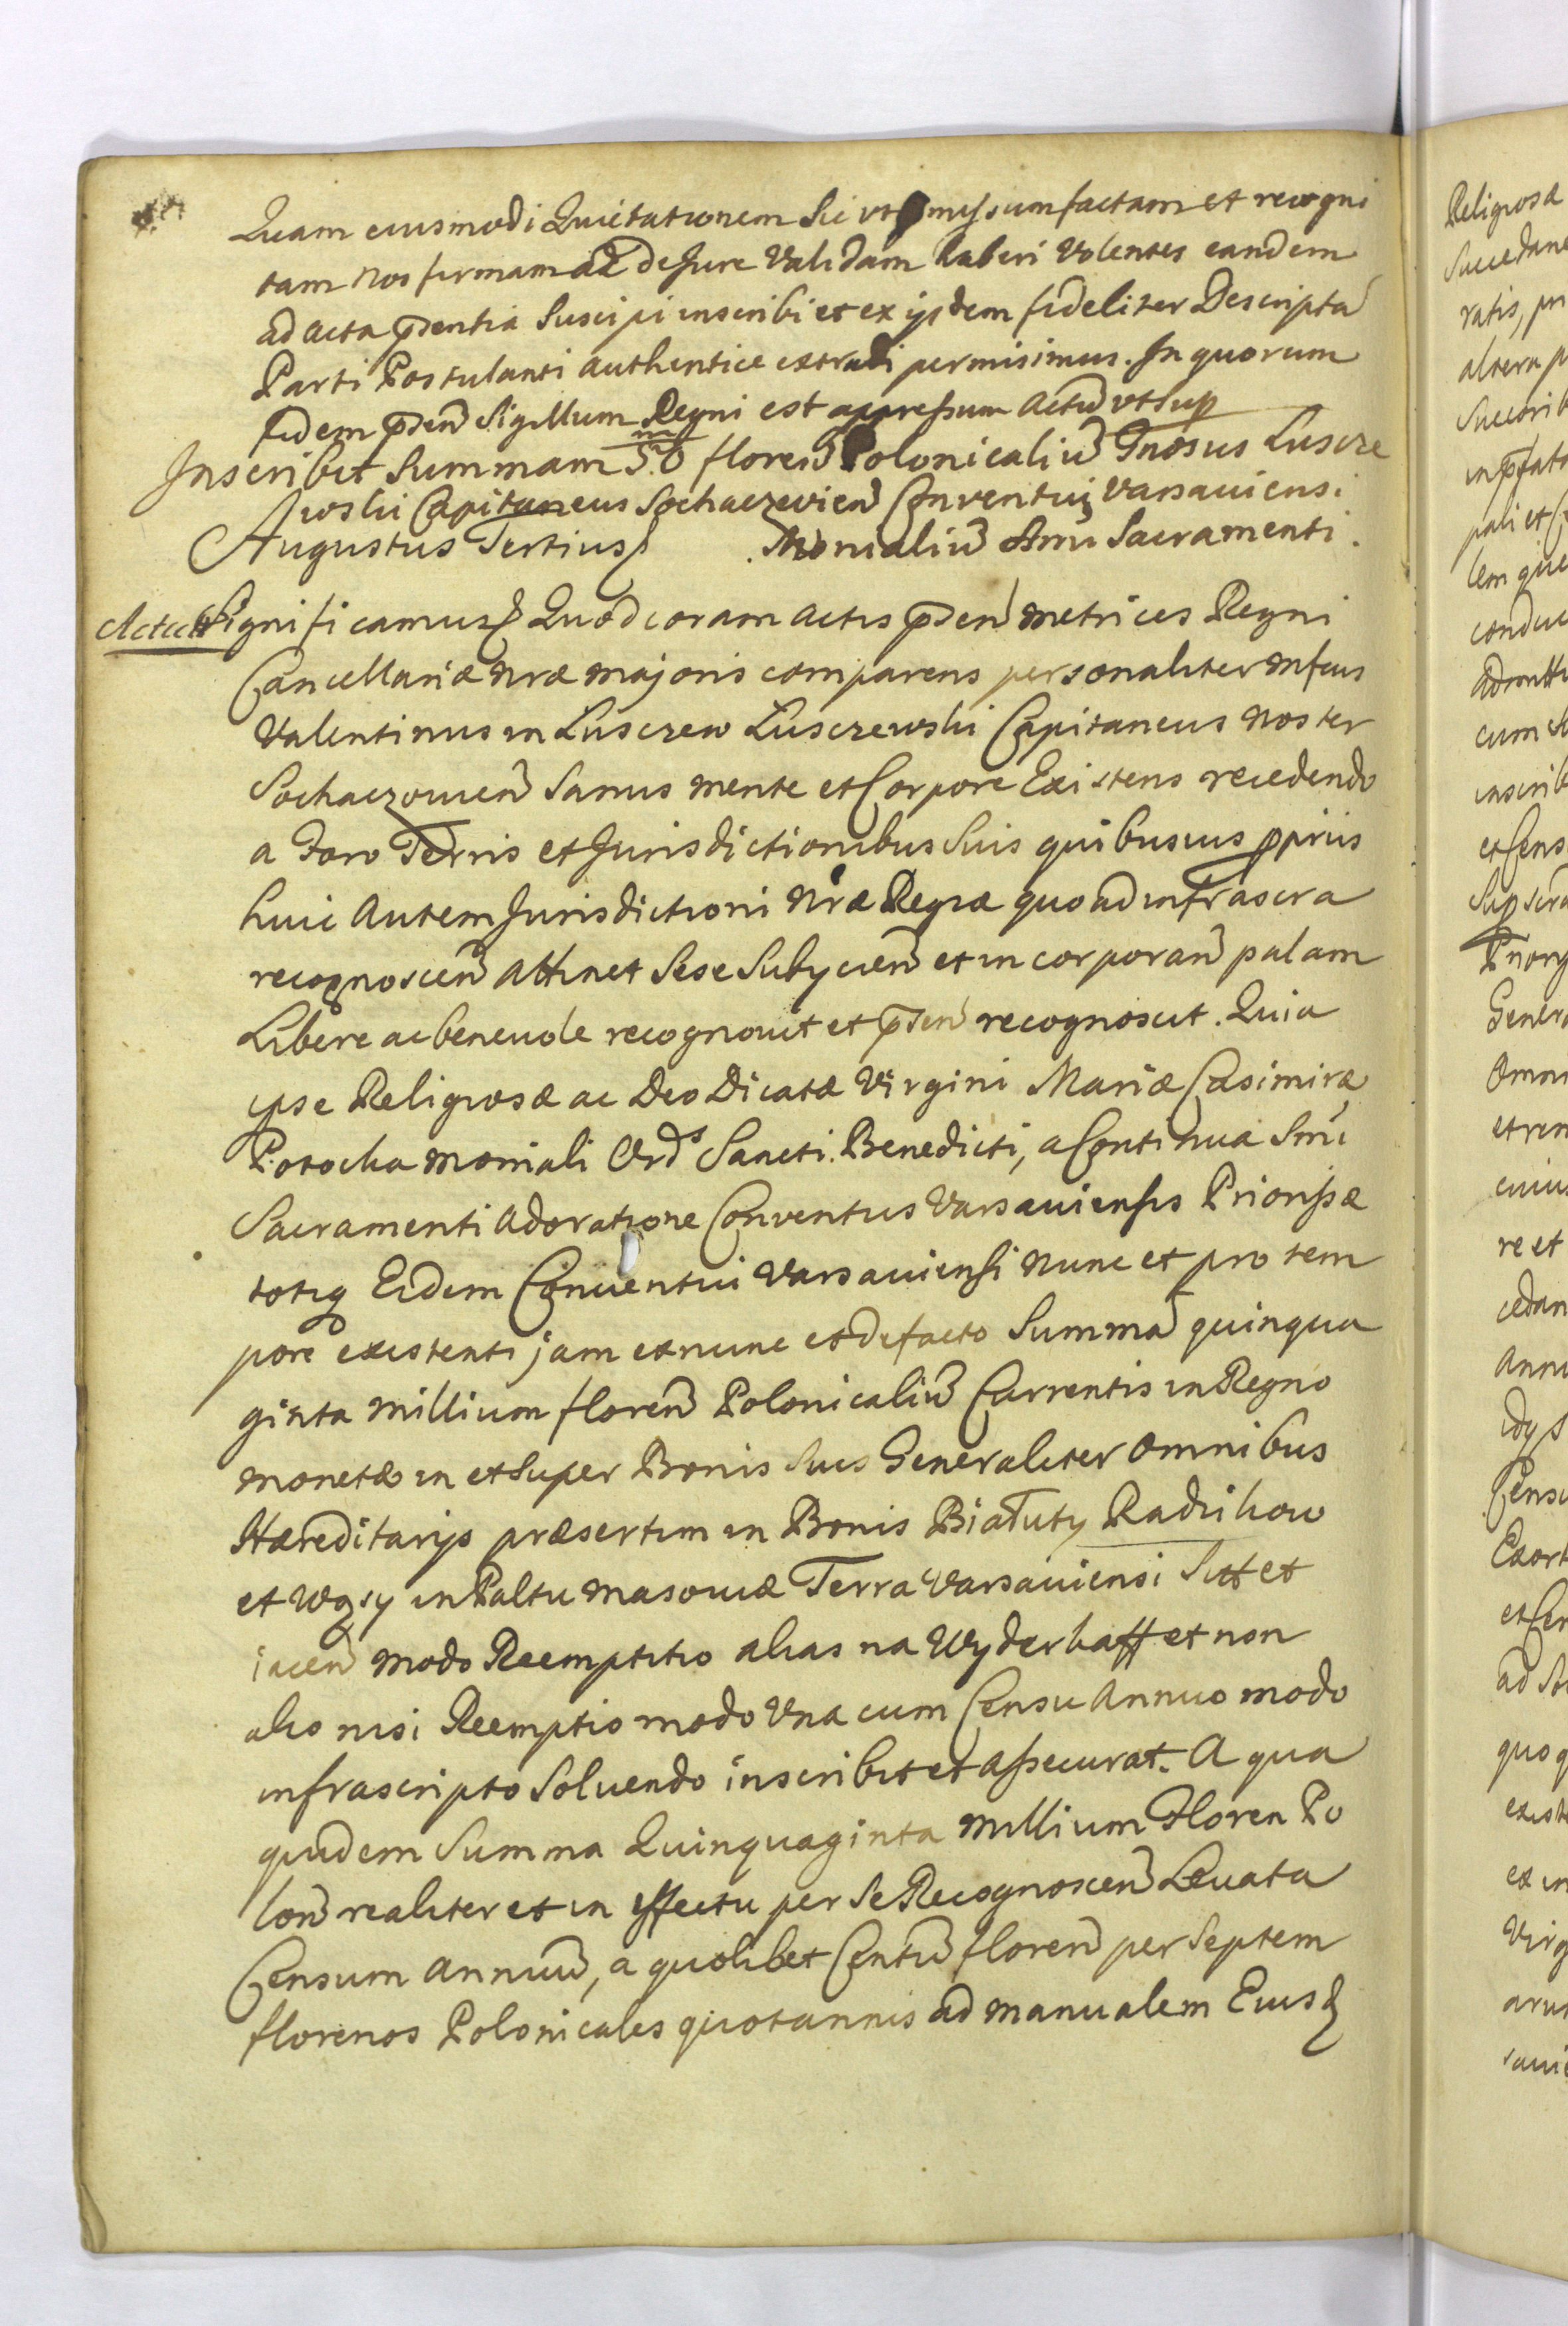 Quam eiusmodi Quietationem sic vt pmissum factam et recogni
tam Nos firmam ac de Jure Validam haberi Volentes eandem
ad acta pntia suscipi inscribi et ex ijsdem fideliter Descripta
Parti Postulanti authentice extradi permisimus. In quorum
fidem pñ Sigillum Regni est appressum Actũ vt sup
Inscribit Summam 50 floreñ Polonicaliũ Gñosus Luscze
wski Capitaneus Sochaczevieñ Conventui Varsaviensi
Augustus Tertius Monialiũ Smi Sacramenti.
Significamus Quod coram actis pñ Metrices Regni
Cancellariæ nræ majoris comparens personaliter Mfcus
Valentinus in Lusczew Lusczewski Capitaneus Noster
Sochaczovieñ Sanus mente et Corpore Existens recedendo
a Foro Terris et Jurisdictionibus suis quibusvis pprius
huic autem Jurisdictioni Nræ Regiæ quo ad infrascra
recognosceñ attinet sese subijcieñ et incorporañ palam
Libere ac benevole recognovit et pñ recognoscit. Quia
ipse Religiosæ ac Deo Dicatæ Virgini Mariæ Casimiræ
Potocka moniali Ords Sancti Benedicti, a Continua Smi
Sacramenti Adoratione Conventus Varsaviensis Priorissæ
totiq Eidem Conventui Varsaviensi nunc et pro tem
pore existenti jam ex nunc et de facto Summã quinqua
ginta millium floreñ Polonicaliũ Currentis in Regno
monetæ in et super Bonis suis Generaliter omnibus
Hæreditarijs præsertim in Bonis Białuty Radzikow
et Wąsy in Paltu Masoviæ Terra Varsaviensi sitt et
iaceñ modo Reemptitio alias na Wyderkaff et non
alio nisi Reemptio modo Vna cum Censu annuo modo
infrascripto solvendo inscribit et assecurat. A qua
quidem Summa Quinquaginta millium Floren Po
loñ realiter et in effectu per se Recognosceñ Levata
Censum annuũ, a quolibet Centũ floreñ per septem
florenos Polonicales quotannis ad manualem Eius